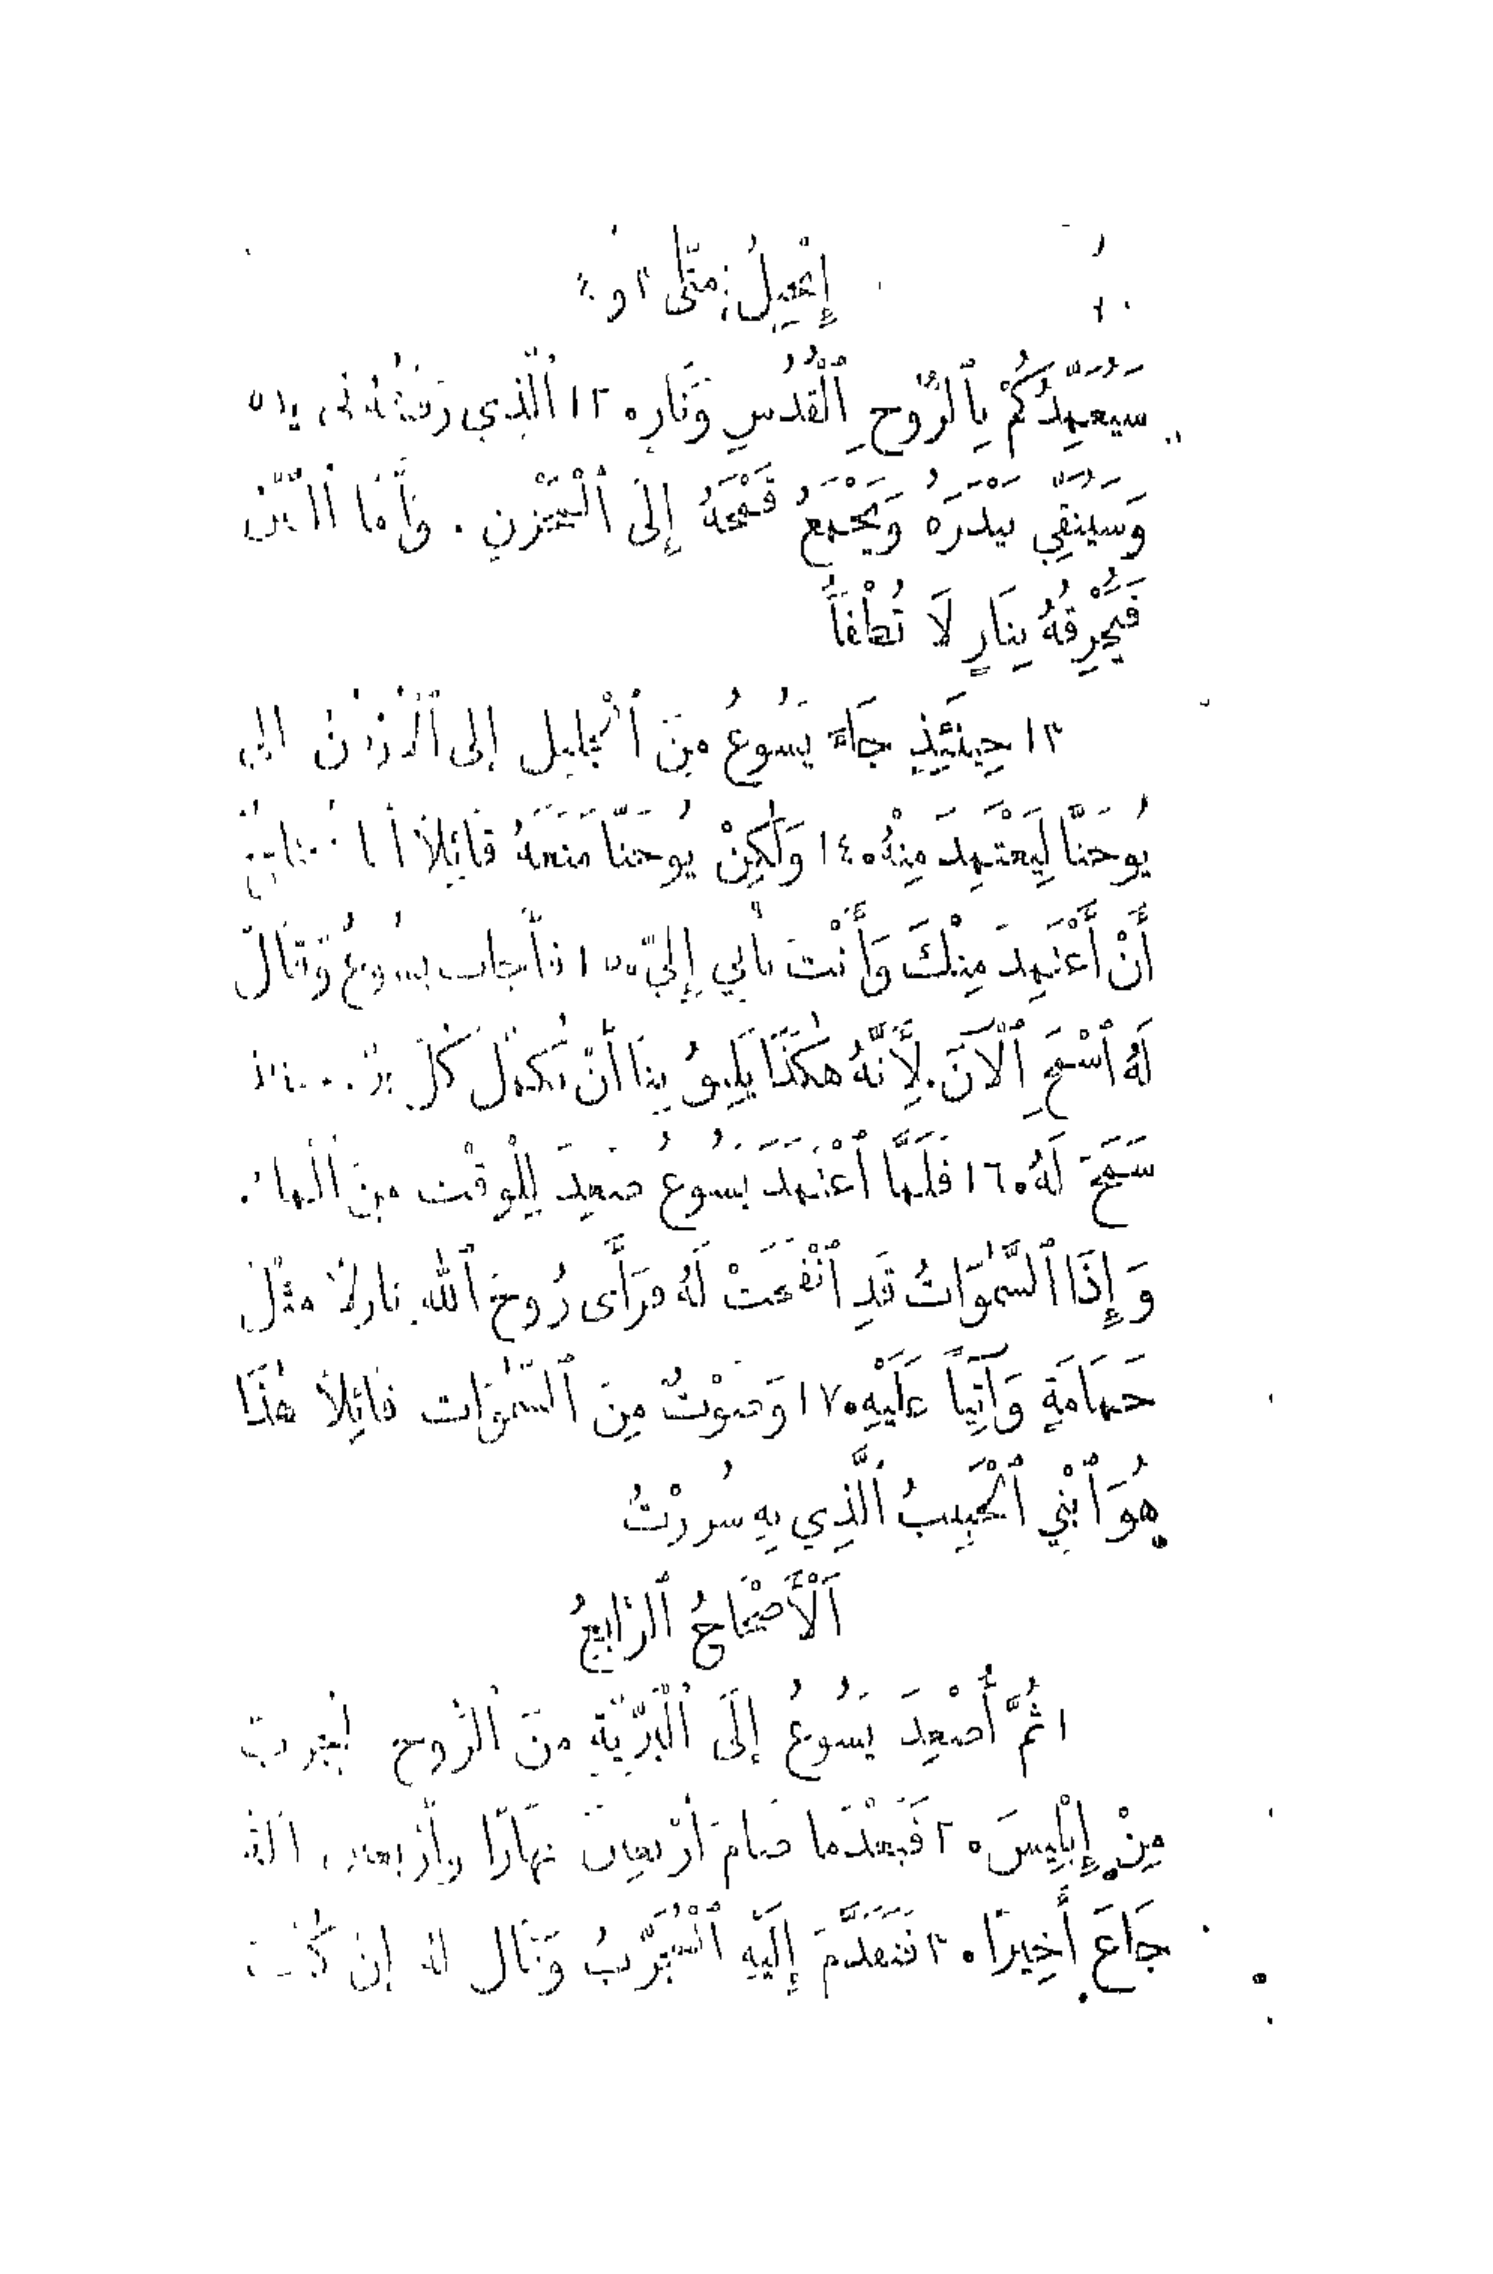 إِنْجِيلُ مَتَّى ٣ و ٤
سَيُعَمِّدُكُمْ بِٱلرُّوحِ ٱلْقُدُسِ وَنَارٍ ٠ ١٢ ٱلَّذِي رَفْشُهُ فِي
وَسَيُنَقِّي بَيْدَرَهُ وَيَجْمَعُ قَمْحَهُ إِلَى ٱلْمَخْزَنِ . وَأَمَّا ٱلتِّبْنُ
فَيُحْرِقُهُ بِنَارٍ لَا تُطْفَأُ
١٣ حِينَئِذٍ جَاءَ يَسُوعُ مِنَ ٱلْجَلِيلِ إِلَى ٱلْأُرْدُنِّ إِلَى
يُوحَنَّا لِيَعْتَمِدَ مِنْهُ ٠ ١٤ وَلٰكِنْ يُوحَنَّا مَنَعَهُ قَائِلًا أَنَا مُحْتَاجٌ
أَنْ أَعْتَمِدَ مِنْكَ وَأَنْتَ تَأْتِي إِلَيَّ ٠ ١٥ فَأَجَابَ يَسُوعُ وَقَالَ
لَهُ ٱسْمَحِ ٱلْآنَ . لِأَنَّهُ هٰكَذَا يَلِيقُ بِنَا أَنْ نُكَمِّلَ كُلَّ
سَمَحَ لَهُ ٠ ١٦ فَلَمَّا ٱعْتَمَدَ يَسُوعُ صَعِدَ لِلْوَقْتِ مِنَ ٱلْمَاءِ .
وَإِذَا ٱلسَّمٰوَاتُ قَدِ ٱنْفَتَحَتْ لَهُ فَرَأَى رُوحَ ٱللهِ نَازِلًا مِثْلَ
حَمَامَةٍ وَآتِيًا عَلَيْهِ ٠ ١٧ وَصَوْتٌ مِنَ ٱلسَّمٰوَاتِ قَائِلًا هٰذَا
هُوَ ٱبْنِي ٱلْحَبِيبُ ٱلَّذِي بِهِ سُرِرْتُ
اَلْأَصْحَاحُ ٱلرَّابِعُ
١ ثُمَّ أُصْعِدَ يَسُوعُ إِلَى ٱلْبَرِّيَّةِ مِنَ ٱلرُّوحِ لِيُجَرَّبَ
مِنْ إِبْلِيسَ ٠ ٢ فَبَعْدَمَا صَامَ أَرْبَعِينَ نَهَارًا وَأَرْبَعِينَ لَيْلَةً
جَاعَ أَخِيرًا ٠ ٣ فَتَقَدَّمَ إِلَيْهِ ٱلْمُجَرِّبُ وَقَالَ لَهُ إِنْ كُنْتَ